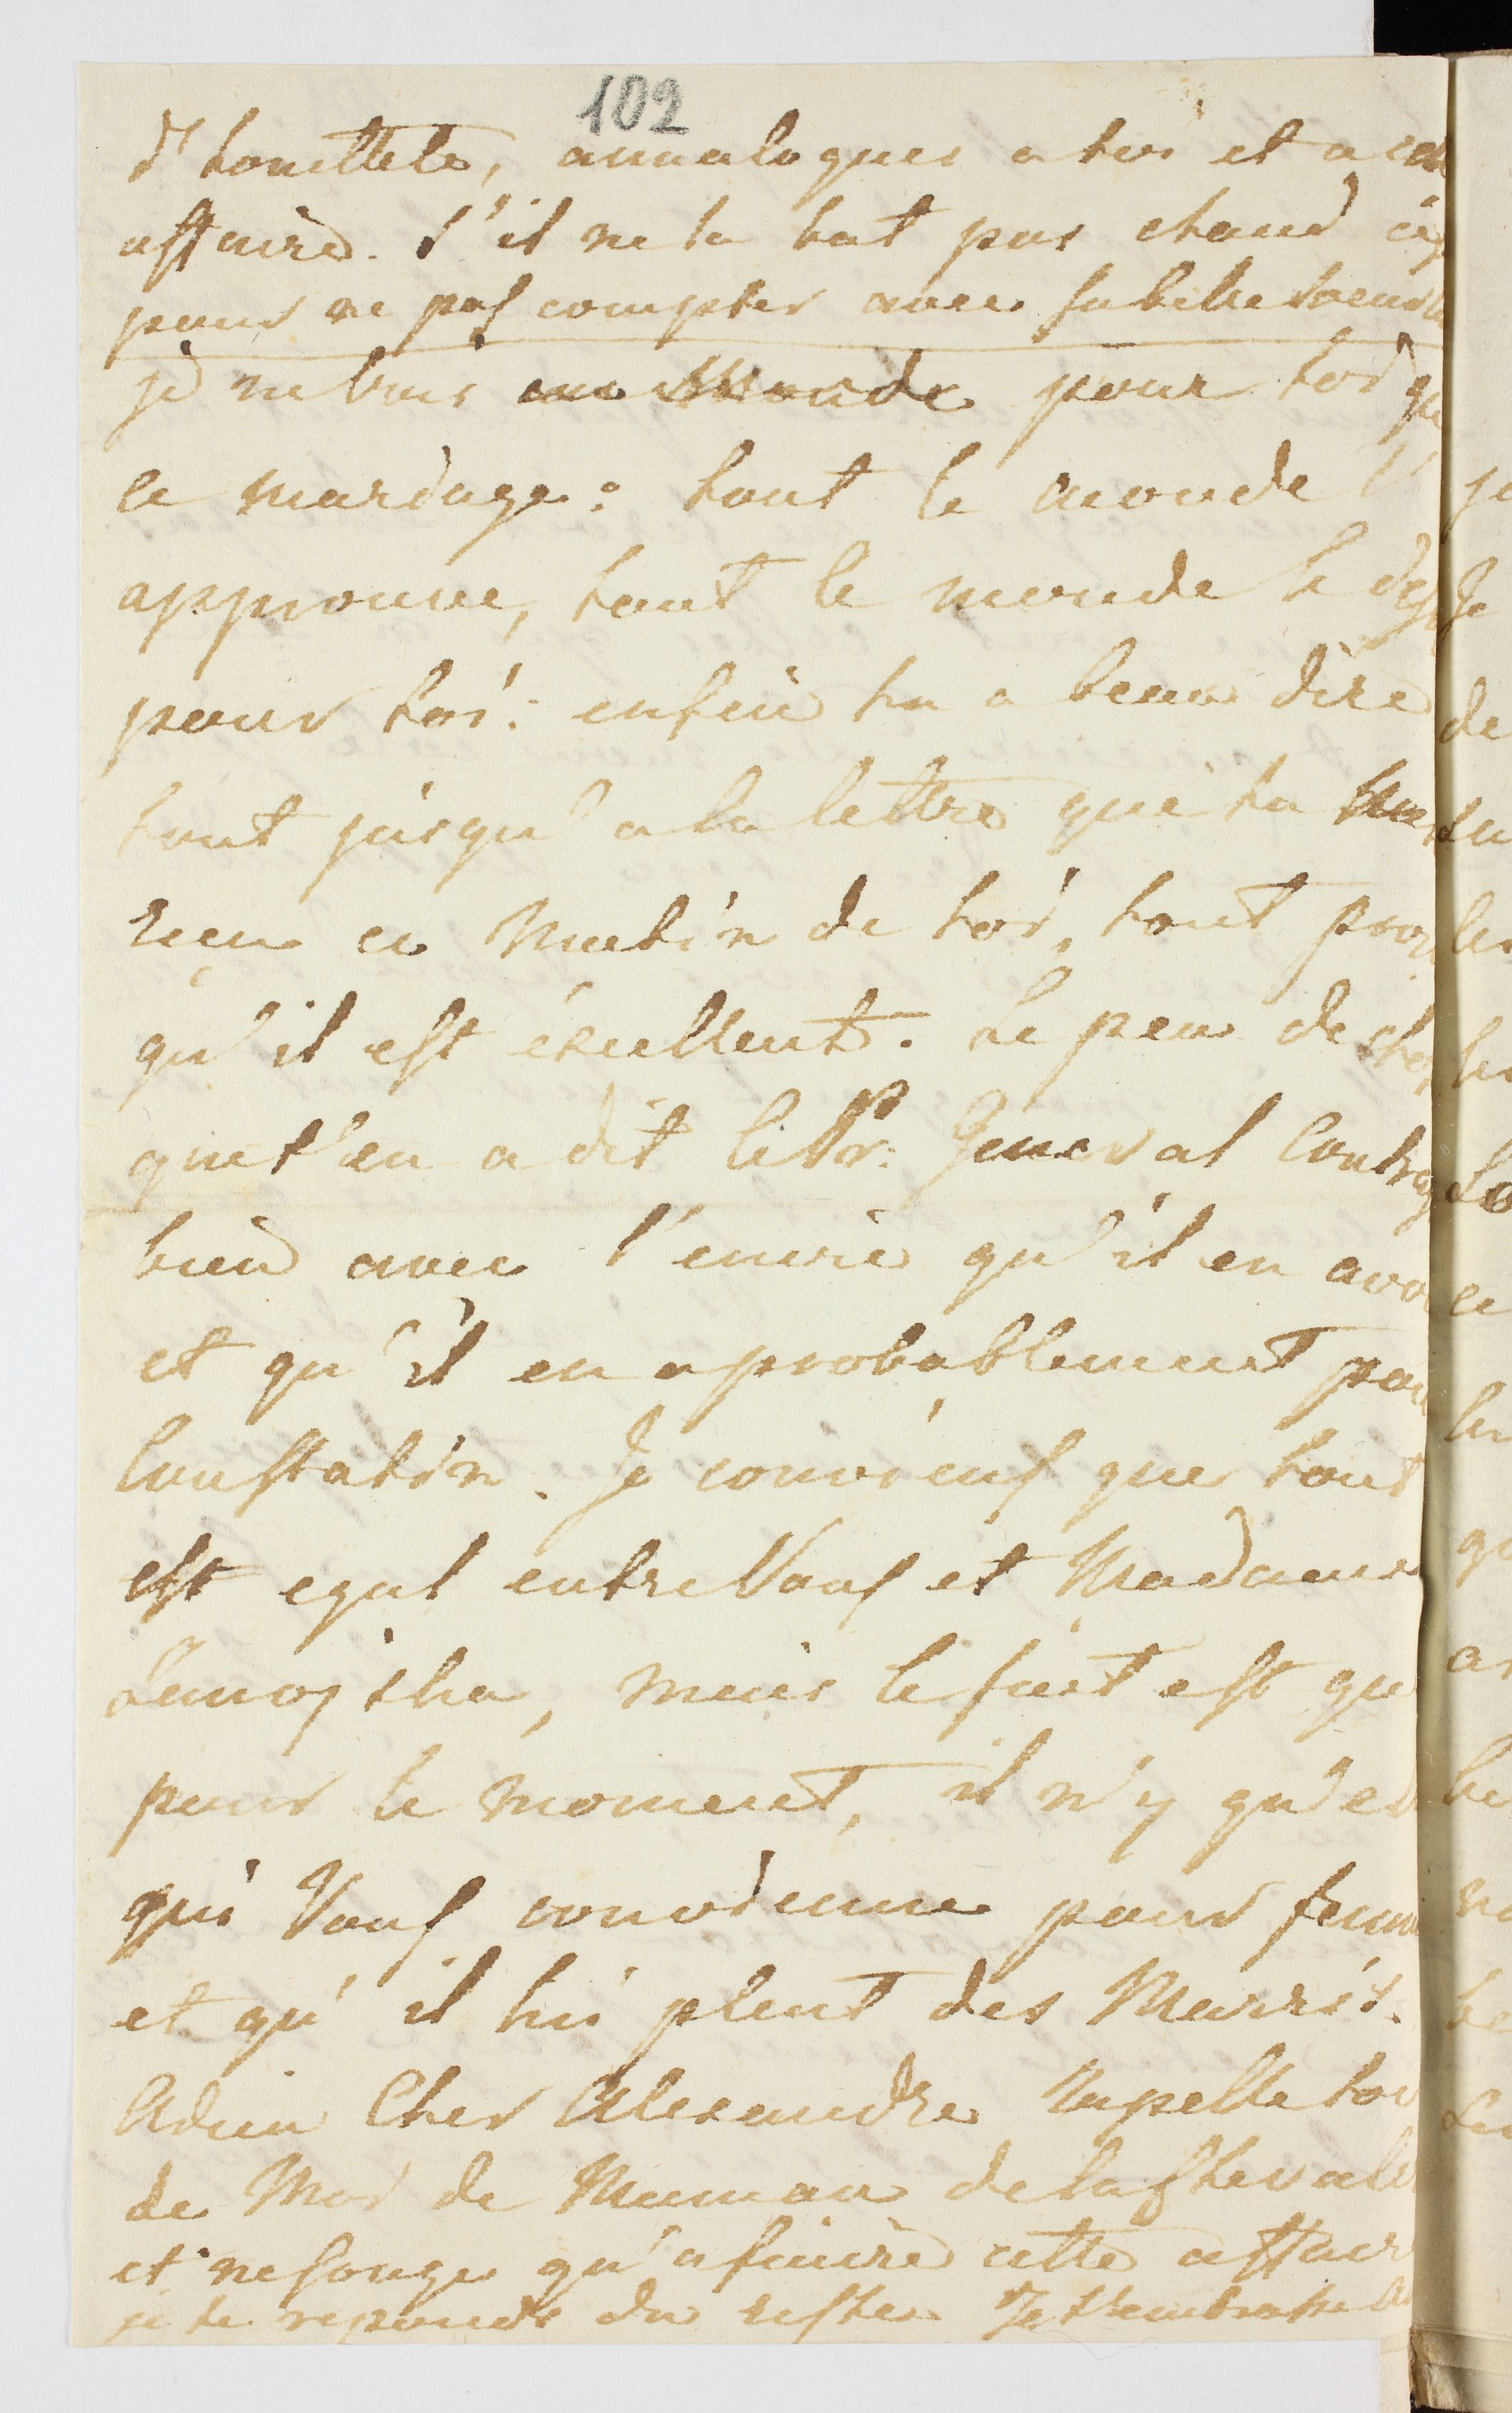 102
d'honettete, annalogues a toi et a cette
affaire. S'il ne la bat pas chaud
pour ne pas compter avec
je ne vois au Monde pour toi que
ce mariage: tout le monde l'
approuve, tout le monde le
pour toi: enfin tu a beau dire
tout jusqu'a la lettre que ta
reçu ce Matin de toi, tout
qu'il est éxcellent. Le peu de
que t'en a dit le Pr: General
bien avec l'envie qu'il en
et qu'il en a probablement
Constatin. Je conviens que tout
est egal entre Vous et Madame
mais le fait est que
pour le moment, il n'y qu'
qui Vous convienne pour femme
et qu'il lui pleut des Marris.
Adieu Cher Alexandre Rapelle toi
de Moi de Maman de la
et ne songe qu'a finire cette affaire
je te reponds du reste. Je t'embrasse